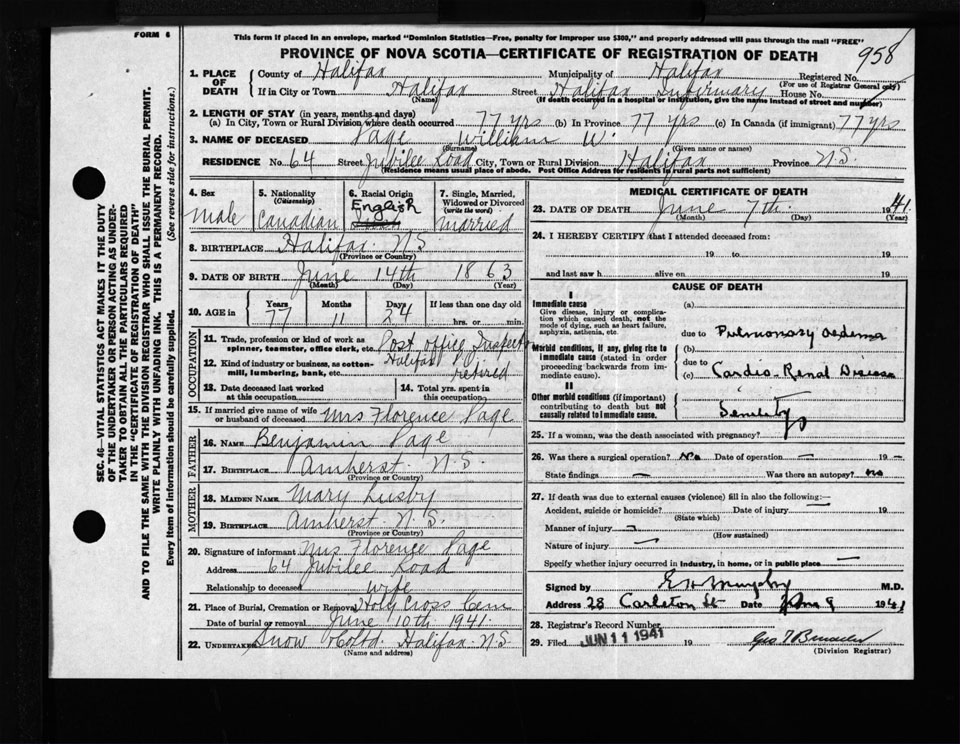 FORM 6
This form if placed in an envelope, marked "Dominion Statistics—Free, penalty for improper use $300," and properly addressed will pass through the mail "FREE"
PROVINCE OF NOVA SCOTIA—CERTIFICATE OF REGISTRATION OF DEATH
958
1. PLACE OF DEATH County of Halifax Municipality of Halifax Registered No.
(For use of Registrar General only)
If in City or Town Halifax Street Halifax Infirmary House No.
(Name) (If death occurred in a hospital or institution, give the name instead of street and number)
2. LENGTH OF STAY (in years, months and days)
(a) In City, Town or Rural Division where death occurred 77 yrs (b) In Province 77 yrs (c) In Canada (if immigrant) 77 yrs
3. NAME OF DECEASED Page William W.
(Surname) (Given name or names)
RESIDENCE No. 64 Street Jubilee Road City, Town or Rural Division Halifax Province N.S.
(Residence means usual place of abode. Post Office Address for residents in rural parts not sufficient)
4. Sex Male
5. Nationality (Citizenship) Canadian
6. Racial Origin English
7. Single, Married, Widowed or Divorced (write the word) Married
8. BIRTHPLACE Halifax N.S.
(Province or Country)
9. DATE OF BIRTH June 14th 1863
(Month) (Day) (Year)
10. AGE in Years 77 Months 11 Days 24 If less than one day old hrs. or min.
OCCUPATION
11. Trade, profession or kind of work as spinner, teamster, office clerk, etc. Post office Inspector
12. Kind of industry or business, as cotton-mill, lumbering, bank, etc. Halifax P.O. retired
13. Date deceased last worked at this occupation
14. Total yrs. spent in this occupation
15. If married give name of wife or husband of deceased Mrs Florence Page
FATHER
16. NAME Benjamin Page
17. BIRTHPLACE Amherst N.S.
(Province or Country)
MOTHER
18. MAIDEN NAME Mary Lusby
19. BIRTHPLACE Amherst N.S.
(Province or Country)
20. Signature of informant Mrs Florence Page
Address 64 Jubilee Road
Relationship to deceased wife
21. Place of Burial, Cremation or Removal Holy Cross Cem
Date of burial or removal June 10th 1941.
22. UNDERTAKER Snow & Co Ltd. Halifax N.S.
(Name and address)
MEDICAL CERTIFICATE OF DEATH
23. DATE OF DEATH June 7th. 1941
(Month) (Day) (Year)
24. I HEREBY CERTIFY that I attended deceased from:
19 to 19
and last saw h alive on 19
CAUSE OF DEATH
I
Immediate cause
Give disease, injury or complication which caused death, not the mode of dying, such as heart failure, asphyxia, asthenia, etc.
(a)
due to Pulmonary oedema
Morbid conditions, if any, giving rise to immediate cause (stated in order proceeding backwards from immediate cause).
(b)
due to
(c) Cardio-Renal Disease
II
Other morbid conditions (if important) contributing to death but not causally related to immediate cause.
Senility
25. If a woman, was the death associated with pregnancy?
26. Was there a surgical operation? No Date of operation — 19 —
State findings — Was there an autopsy? no
27. If death was due to external causes (violence) fill in also the following:—
Accident, suicide or homicide? Date of injury 19
(State which)
Manner of injury
(How sustained)
Nature of injury
Specify whether injury occurred in industry, in home, or in public place
Signed by E H Murphy M.D.
Address 28 Carleton St Date June 9 1941
28. Registrar's Record Number
29. Filed JUN 11 1941 19
(Division Registrar)
SEC. 46—VITAL STATISTICS ACT MAKES IT THE DUTY
OF THE UNDERTAKER OR PERSON ACTING AS UNDER-
TAKER TO OBTAIN ALL THE PARTICULARS REQUIRED
IN THE "CERTIFICATE OF REGISTRATION OF DEATH"
AND TO FILE THE SAME WITH THE DIVISION REGISTRAR WHO SHALL ISSUE THE BURIAL PERMIT.
WRITE PLAINLY WITH UNFADING INK. THIS IS A PERMANENT RECORD.
Every item of information should be carefully supplied. (See reverse side for instructions.)